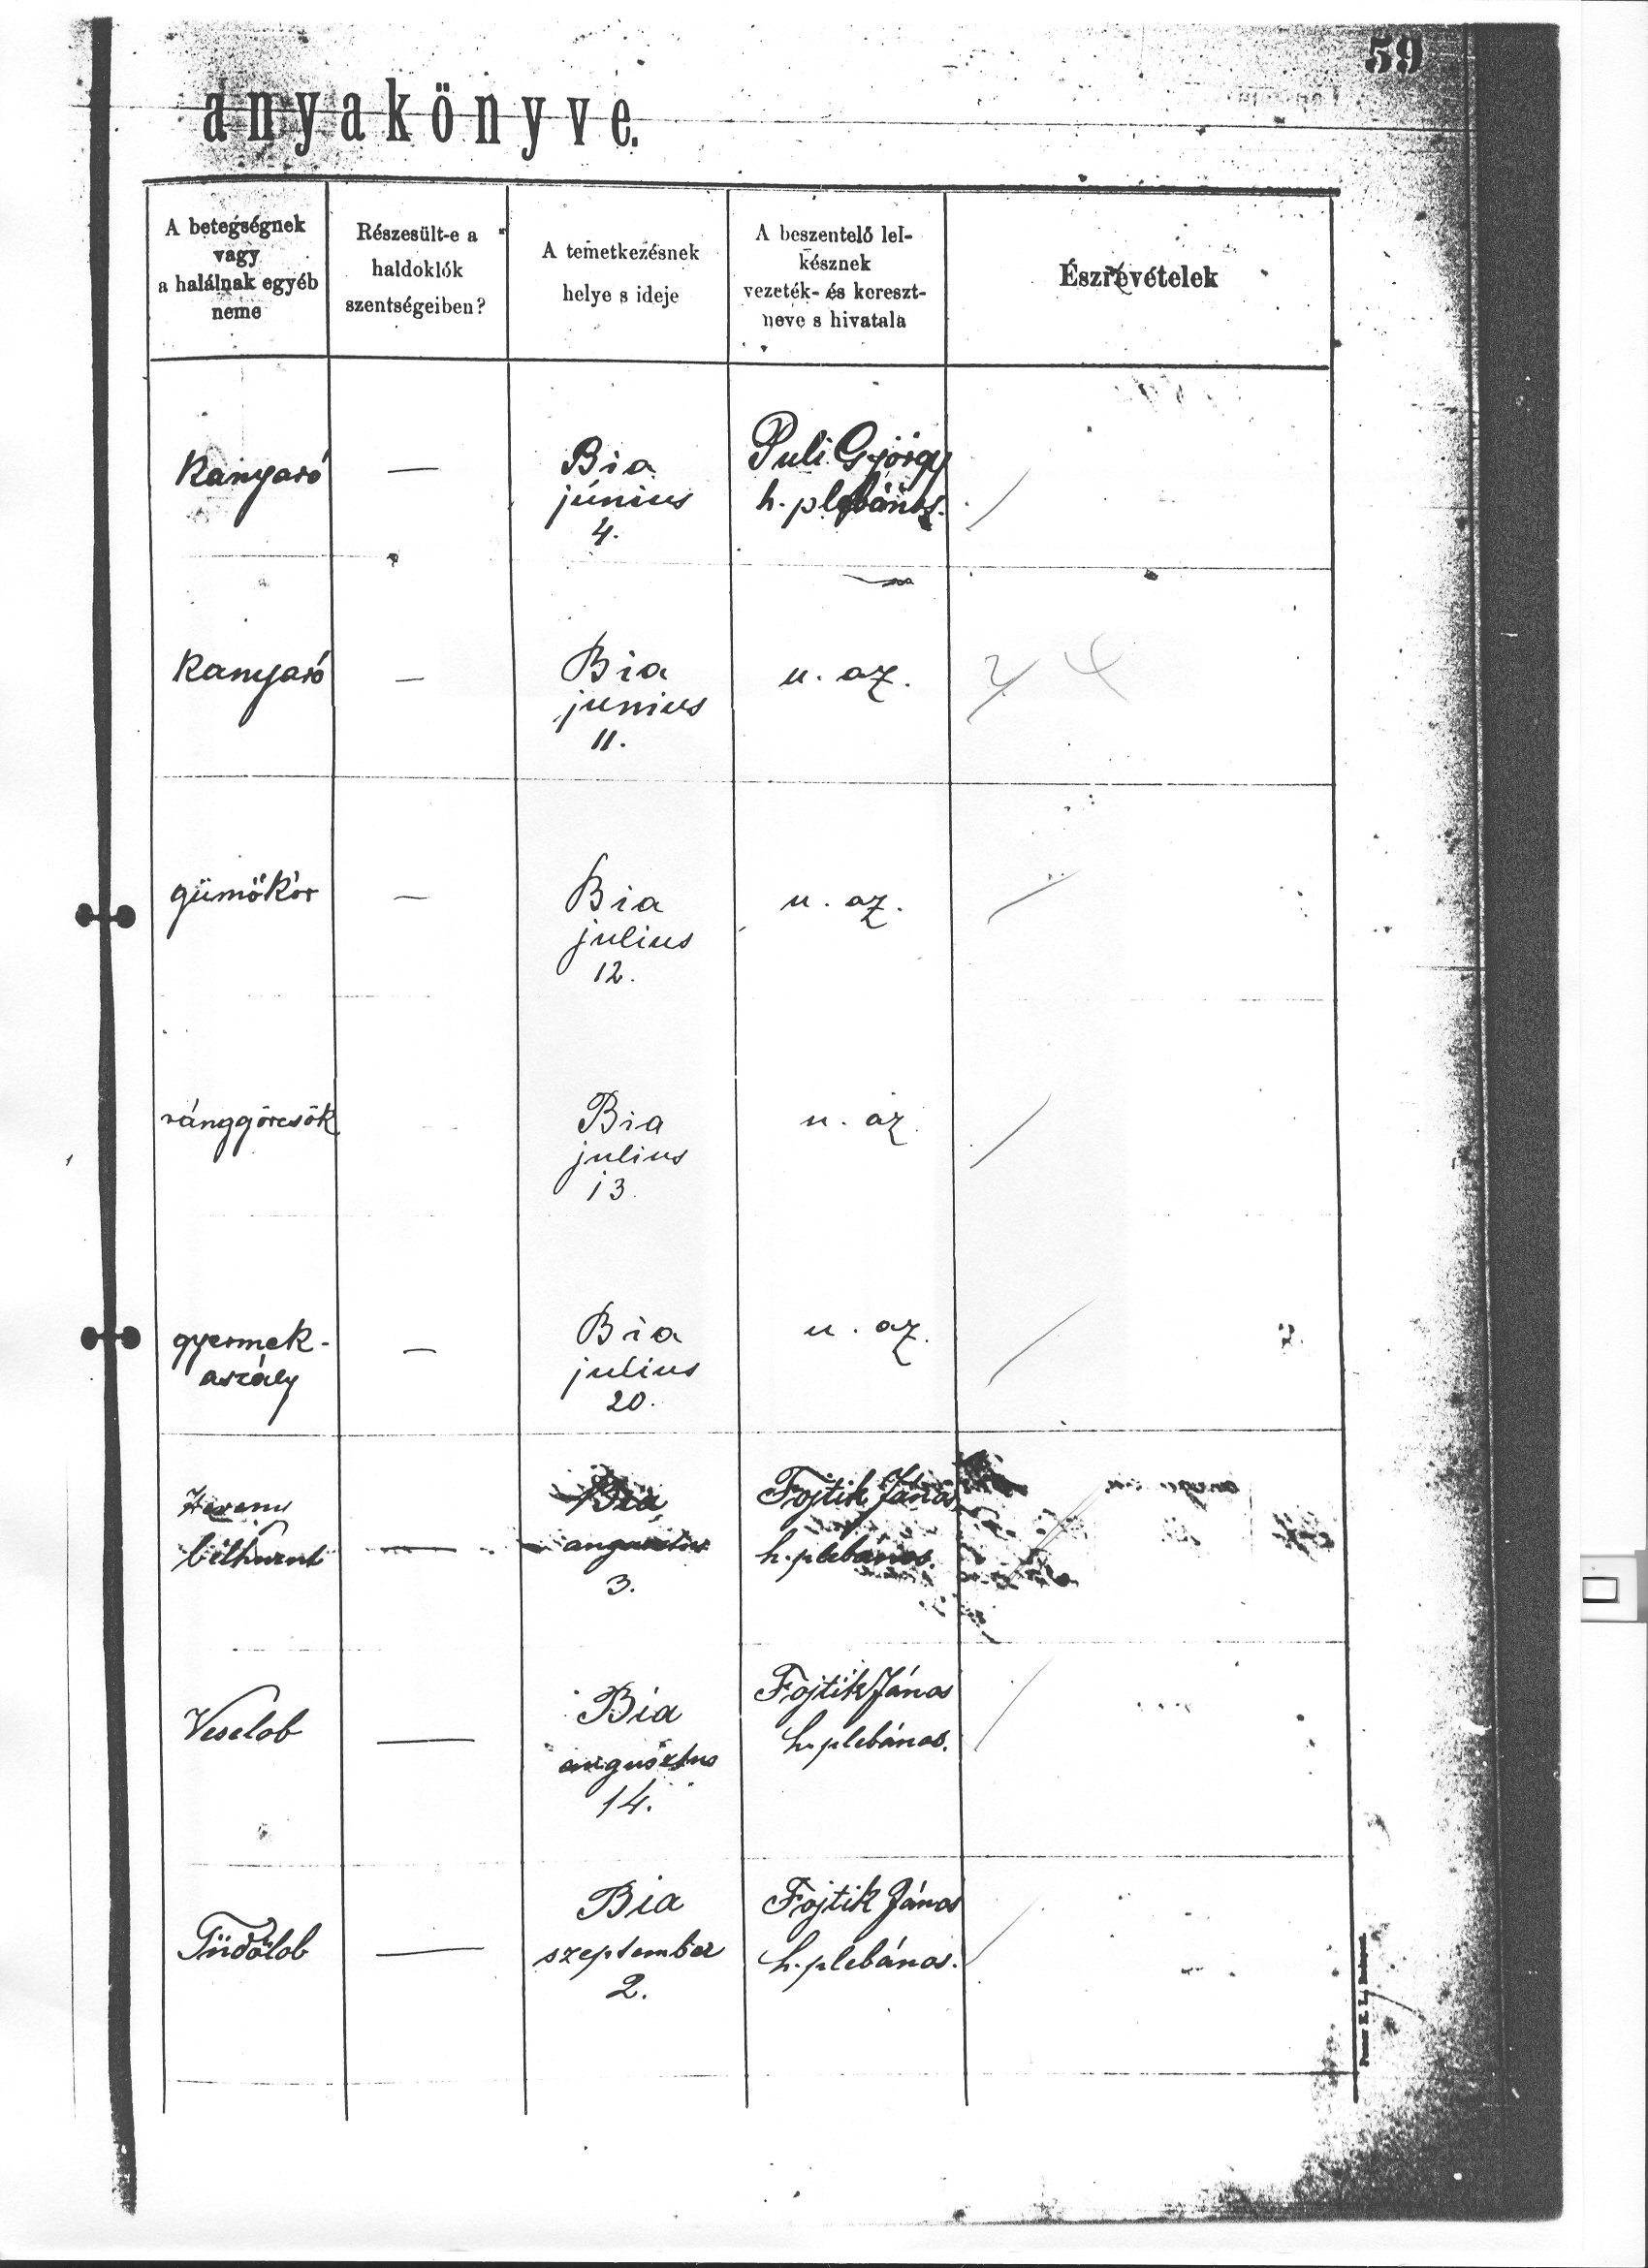 59
anyakönyve.
A betegségnek
vagy
a halálnak egyéb
neme
Részesült-e a
haldoklók
szentségeiben?
A temetkezésnek
helye s ideje
A beszentelő lel-
késznek
vezeték- és kereszt-
neve s hivatala
Észrevételek
Kanyaró
—
Bia
június
4.
Puli György
h. plébános.
Kanyaró
—
Bia
junius
11.
u. az.
4
gümőkór
—
Bia
julius
12.
u. az.
ránggörcsök
Bia
julius
13.
u. az.
gyermek-
aszály
—
Bia
julius
20.
u. az.
Heveny
bélhurut
—
Bia
augusztus
3.
Fojtik János
h. plebános.
Veselob
—
Bia
augusztus
14.
Fojtik János
h. plebános.
Tüdőlob
—
Bia
szeptember
2.
Fojtik János
h. plebános.